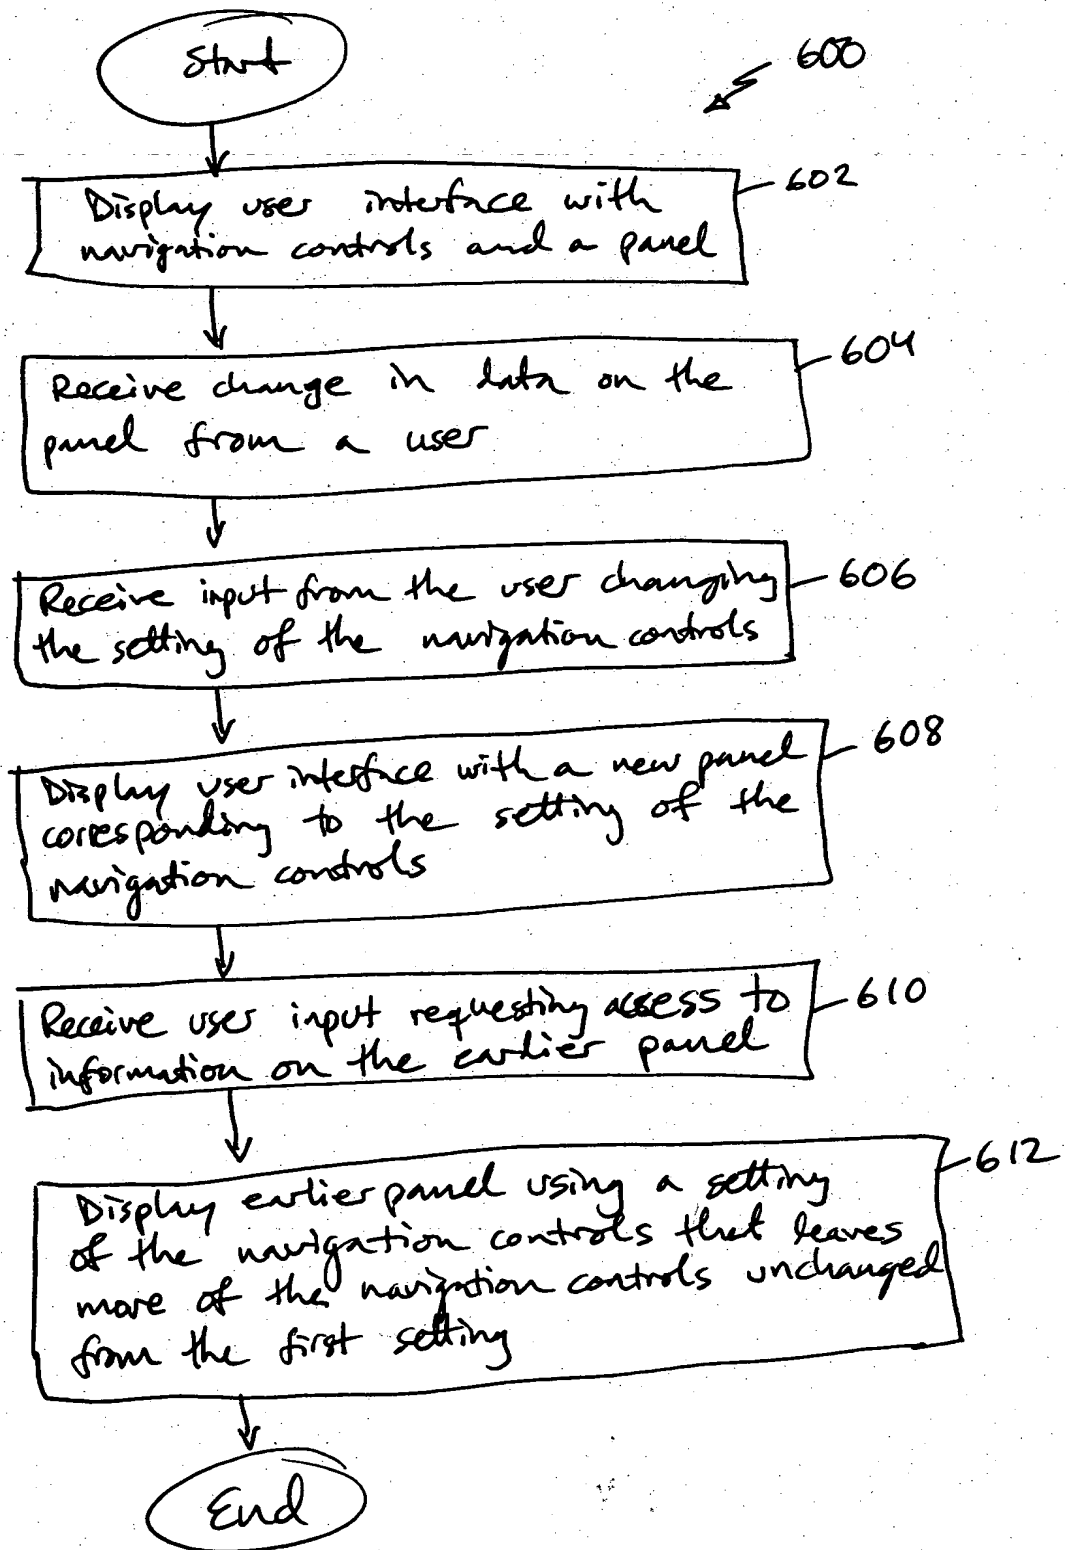 Start
600
602
Display user interface with
navigation controls and a panel
604
Receive change in data on the
panel from a user
606
Receive input from the user changing
the setting of the navigation controls
608
Display user interface with a new panel
corresponding to the setting of the
navigation controls
610
Receive user input requesting access to
information on the earlier panel
612
Display earlier panel using a setting
of the navigation controls that leaves
more of the navigation controls unchanged
from the first setting
End